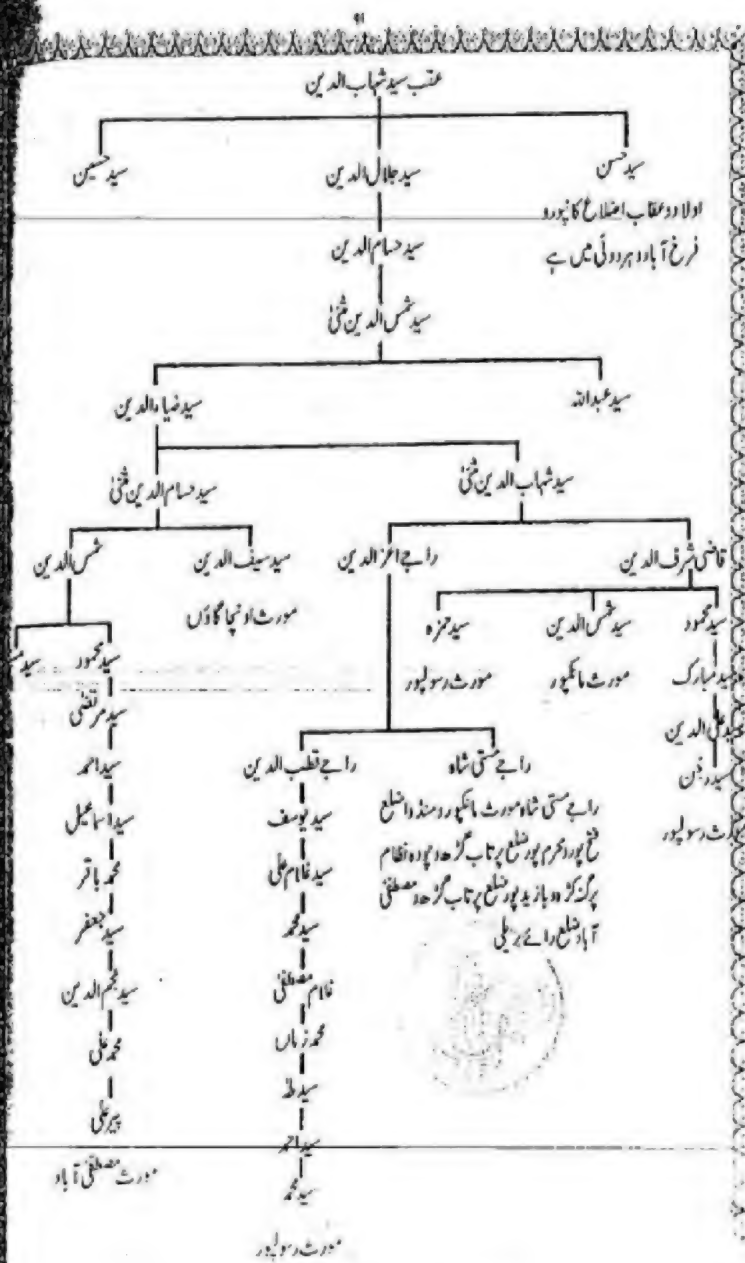 ۹۱
عقب سید شہاب الدین
سید حسن
سید جلال الدین
سید حسین
اولاد و عقاب اضلاع کانپور و
فرخ آباد و ہردوئی میں ہے
سید حسام الدین
سید شمس الدین مثنیٰ
سید عبداللہ
سید ضیاء الدین
سید شہاب الدین مثنیٰ
سید حسام الدین مثنیٰ
قاضی شرف الدین
راجے اعز الدین
سید سیف الدین
شمس الدین
مورث اونچا گاؤں
سید محمود
سید شمس الدین
سید حمزہ
مورث مانکپور
مورث رسولپور
سید مبارک
سید علی الدین
مورث رسولپور
راجے مستی شاہ
راجے قطب الدین
راجے مستی شاہ مورث مانکپور و منڈوا ضلع
فتح پور و محرم پور ضلع پرتاب گڑھ و پورہ نظام
پرگنہ کڑہ و بازید پور ضلع پرتاب گڑھ و مصطفیٰ
آباد ضلع رائے بریلی
سید یوسف
سید غلام علی
سید محمد
غلام مصطفیٰ
محمد زماں
سید طٰہٰ
سید احمد
سید محمد
مورث رسولپور
سید محمود
سید
سید مرتضیٰ
سید احمد
سید اسماعیل
محمد باقر
سید جعفر
سید نجم الدین
محمد علی
پیر علی
مورث مصطفیٰ آباد